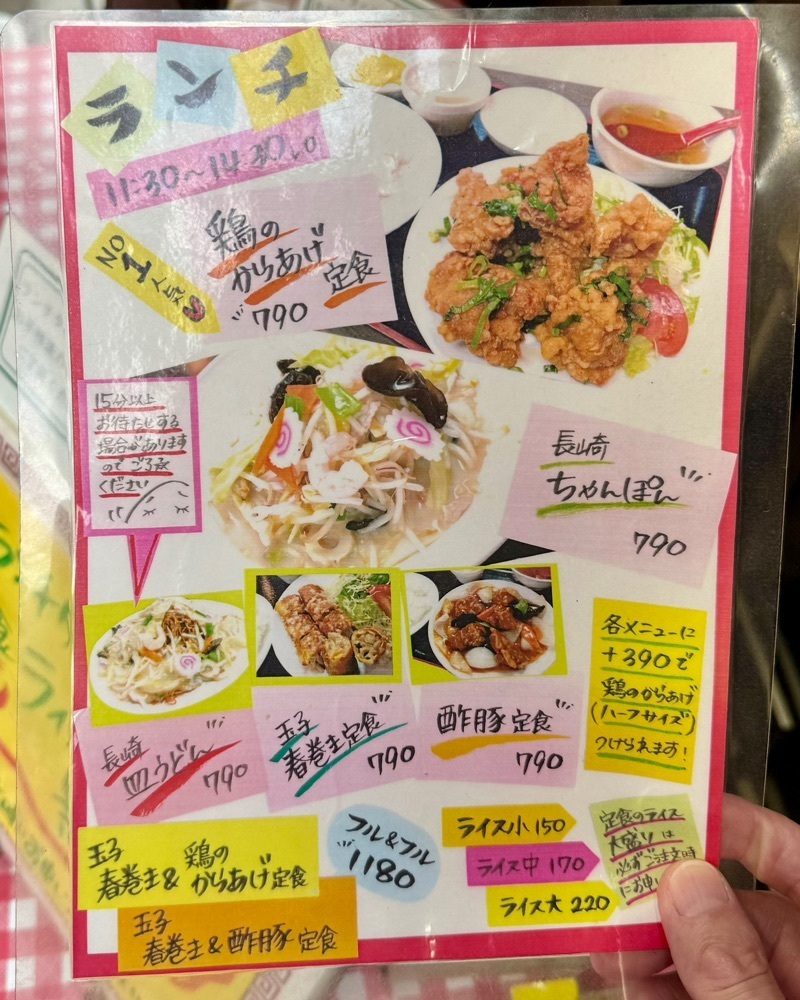 ランチ
11:30〜14:30L.O
NO
1
人気
鶏の
からあげ
定食
790
15分以上
お待たせする
場合があります
ので ご了承
ください
長崎
ちゃんぽん
790
長崎
皿うどん
790
玉子
春巻き定食
790
酢豚定食
790
各メニューに
+390で
鶏のからあげ
(ハーフサイズ)
つけられます!
玉子
春巻き&鶏の
からあげ定食
玉子
春巻き&酢豚定食
フル&フル
1180
ライス小 150
ライス中 170
ライス大 220
定食のライス
大盛りは
必ずご注文時
にお申